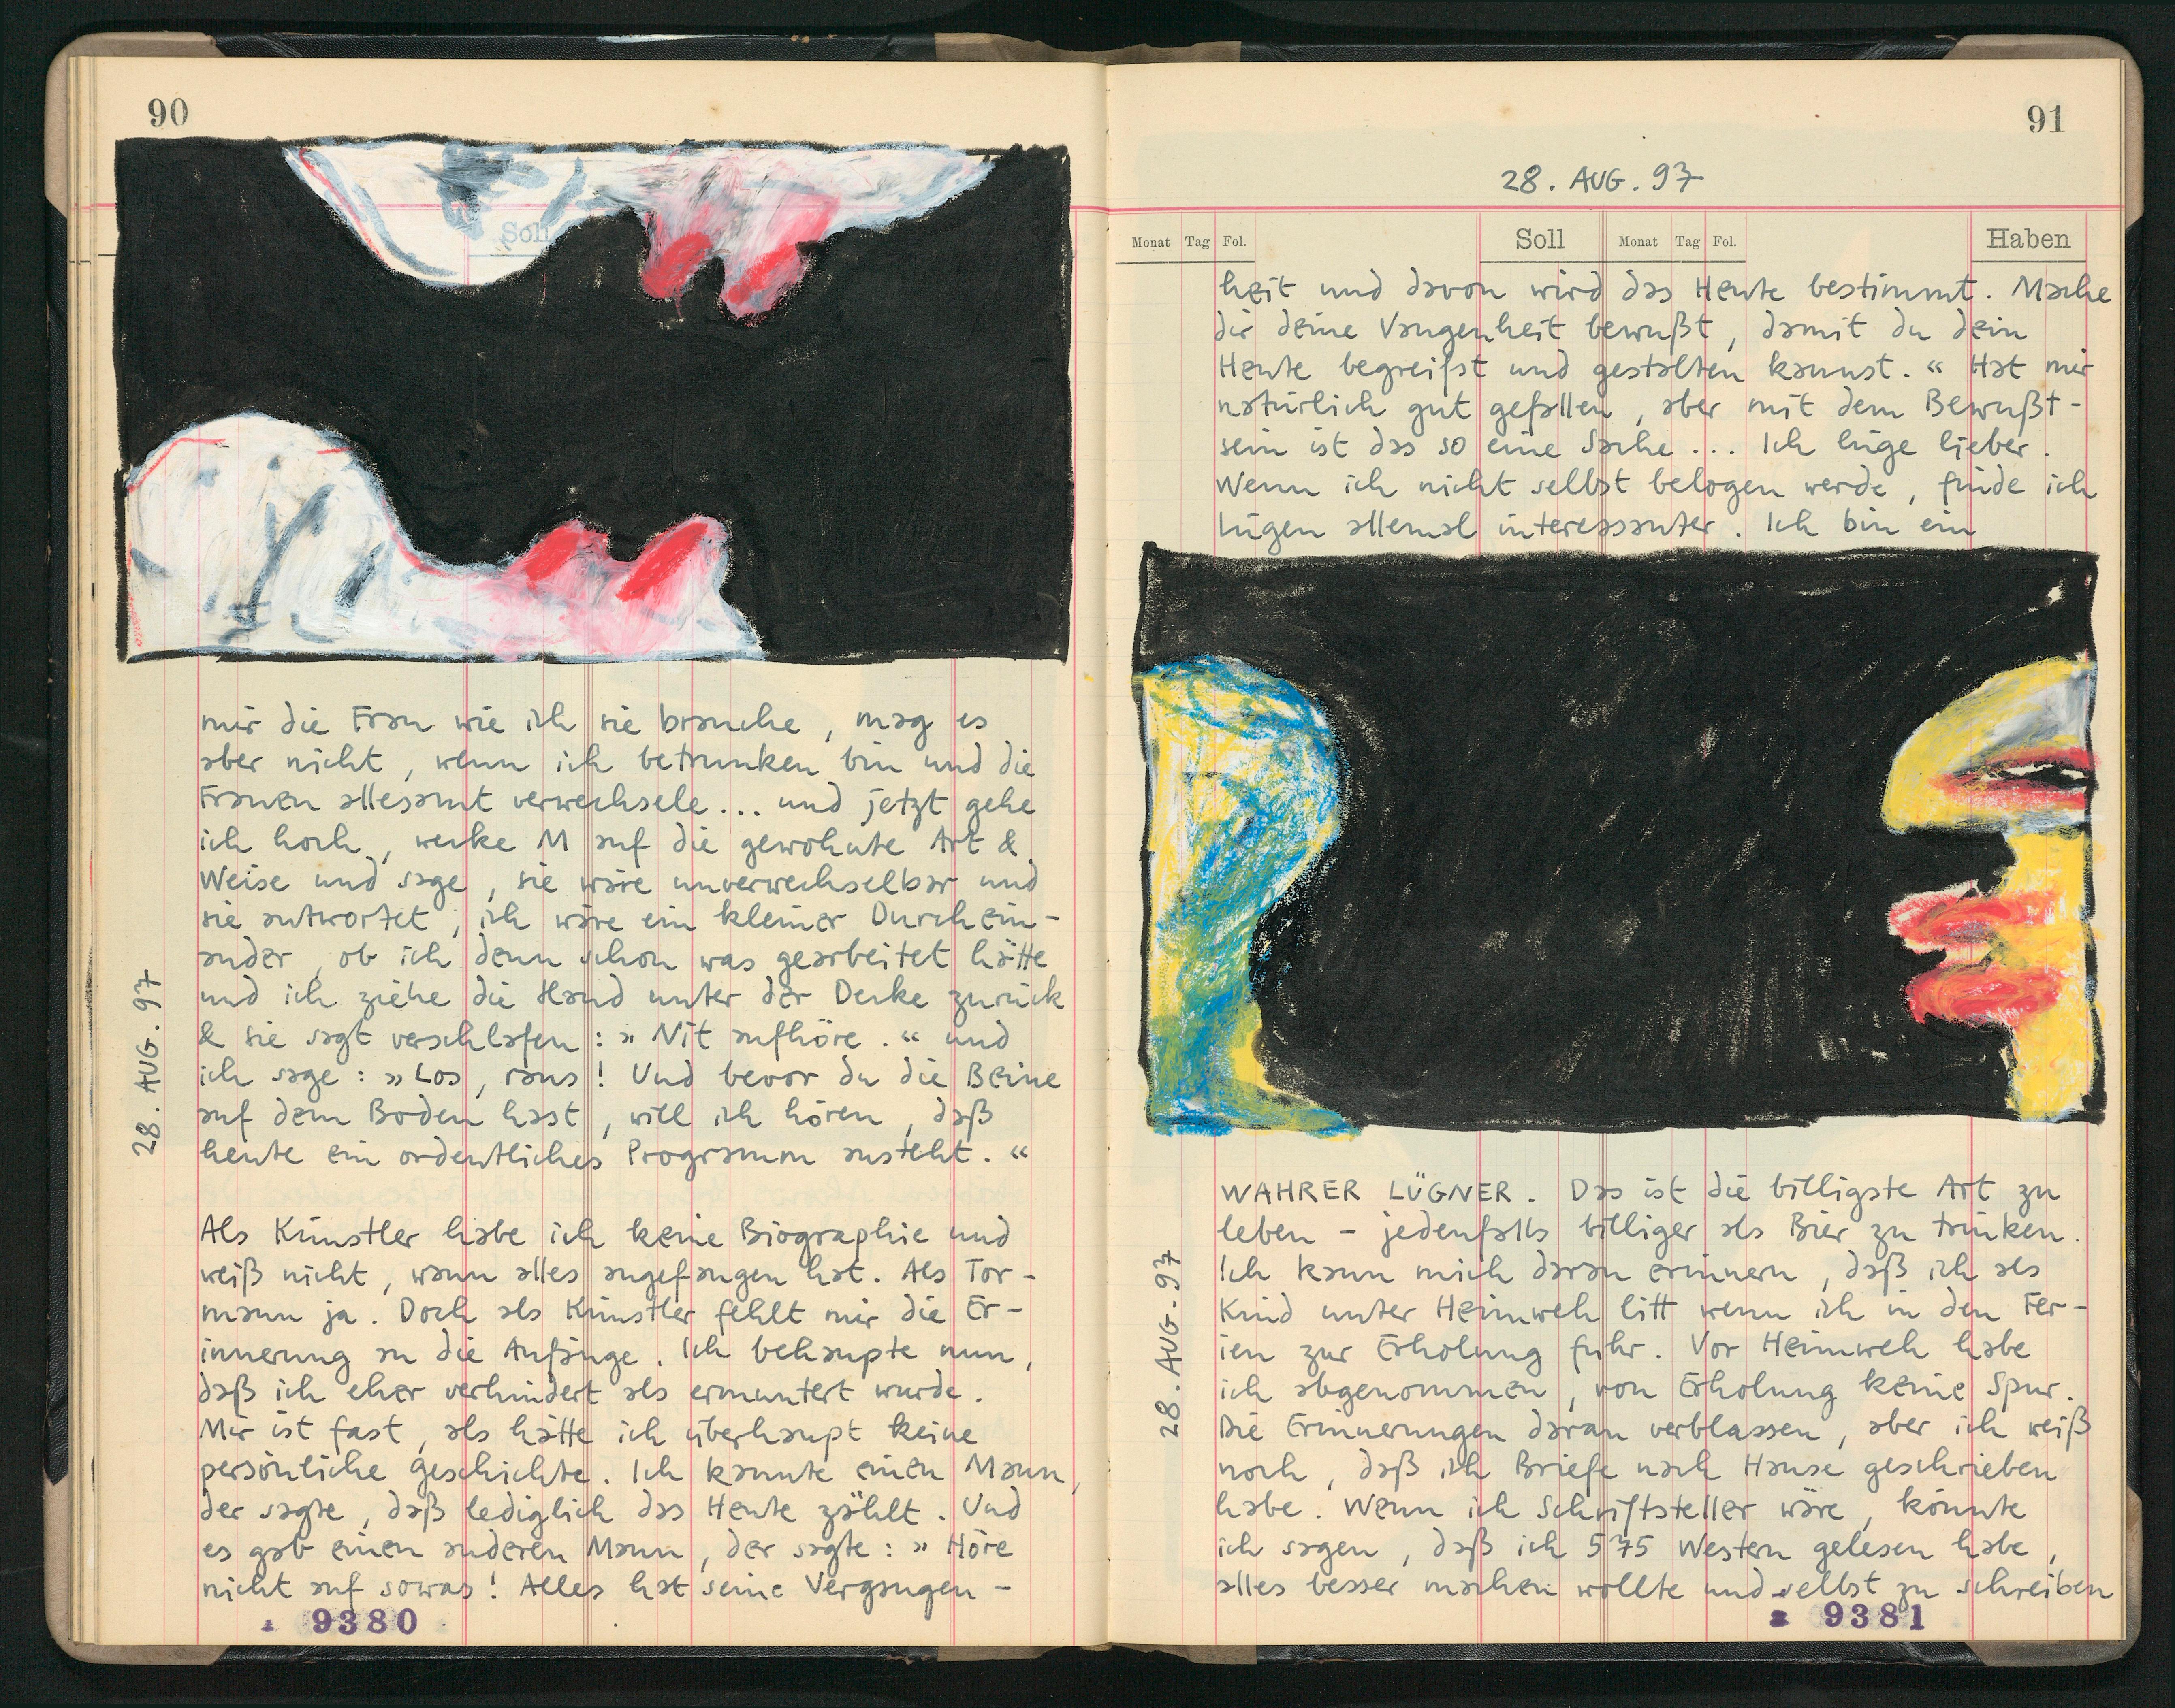 90
Soll
mir die Frau wie ich sie brauche, mag es
aber nicht, wenn ich betrunken bin und die
Frauen allesamt verwechsele... und jetzt gehe
ich hoch, wecke M auf die gewohnte Art &
Weise und sage, sie wäre unverwechselbar und
sie antwortet, ich wäre ein kleiner Durchein-
ander, ob ich denn schon was gearbeitet hätte
und ich ziehe die Hand unter der Decke zurück
& sie sagt verschlafen: » Nit aufhöre. « und
ich sage: » Los, raus! Und bevor du die Beine
auf dem Boden hast, will ich hören, daß
heute ein ordentliches Programm ansteht. «
28. AUG. 97
Als Künstler habe ich keine Biographie und
weiß nicht, wann alles angefangen hat. Als Tor-
mann ja. Doch als Künstler fehlt mir die Er-
innerung an die Anfänge. Ich behaupte nun,
daß ich eher verhindert als ermuntert wurde.
Mir ist fast, als hätte ich überhaupt keine
persönliche Geschichte. Ich kannte einen Mann,
der sagte, daß lediglich das Heute zählt. Und
es gab einen anderen Mann, der sagte: » Höre
nicht auf sowas! Alles hat seine Vergangen-
9380
91
28. AUG. 97
Monat Tag Fol. Soll Monat Tag Fol. Haben
heit und davon wird das Heute bestimmt. Mache
dir deine Vangenheit bewußt, damit du dein
Heute begreifst und gestalten kannst. « Hat mir
natürlich gut gefallen, aber mit dem Bewußt-
sein ist das so eine Sache... Ich lüge lieber.
Wenn ich nicht selbst belogen werde, finde ich
Lügen allemal interessanter. Ich bin ein
WAHRER LÜGNER. Das ist die billigste Art zu
leben - jedenfalls billiger als Bier zu trinken.
Ich kann mich daran erinnern, daß ich als
Kind unter Heimweh litt wenn ich in den Fer-
ien zur Erholung fuhr. Vor Heimweh habe
ich abgenommen, von Erholung keine Spur.
Die Erinnerungen daran verblassen, aber ich weiß
noch, daß ich Briefe nach Hause geschrieben
habe. Wenn ich Schriftsteller wäre, könnte
ich sagen, daß ich 575 Western gelesen habe,
alles besser machen wollte und selbst zu schreiben
28. AUG. 97
9381